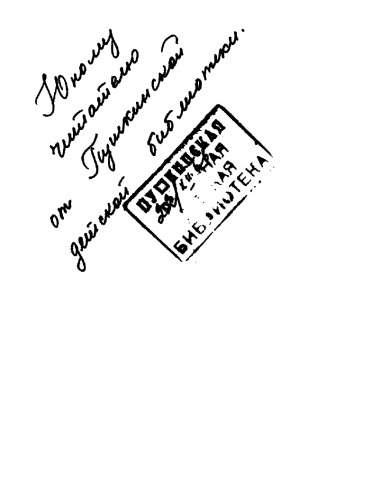 Юному
читателю
Пушкинской
от
детской библиотеки.
ПУШКИНСКАЯ
БИБЛИОТЕКА